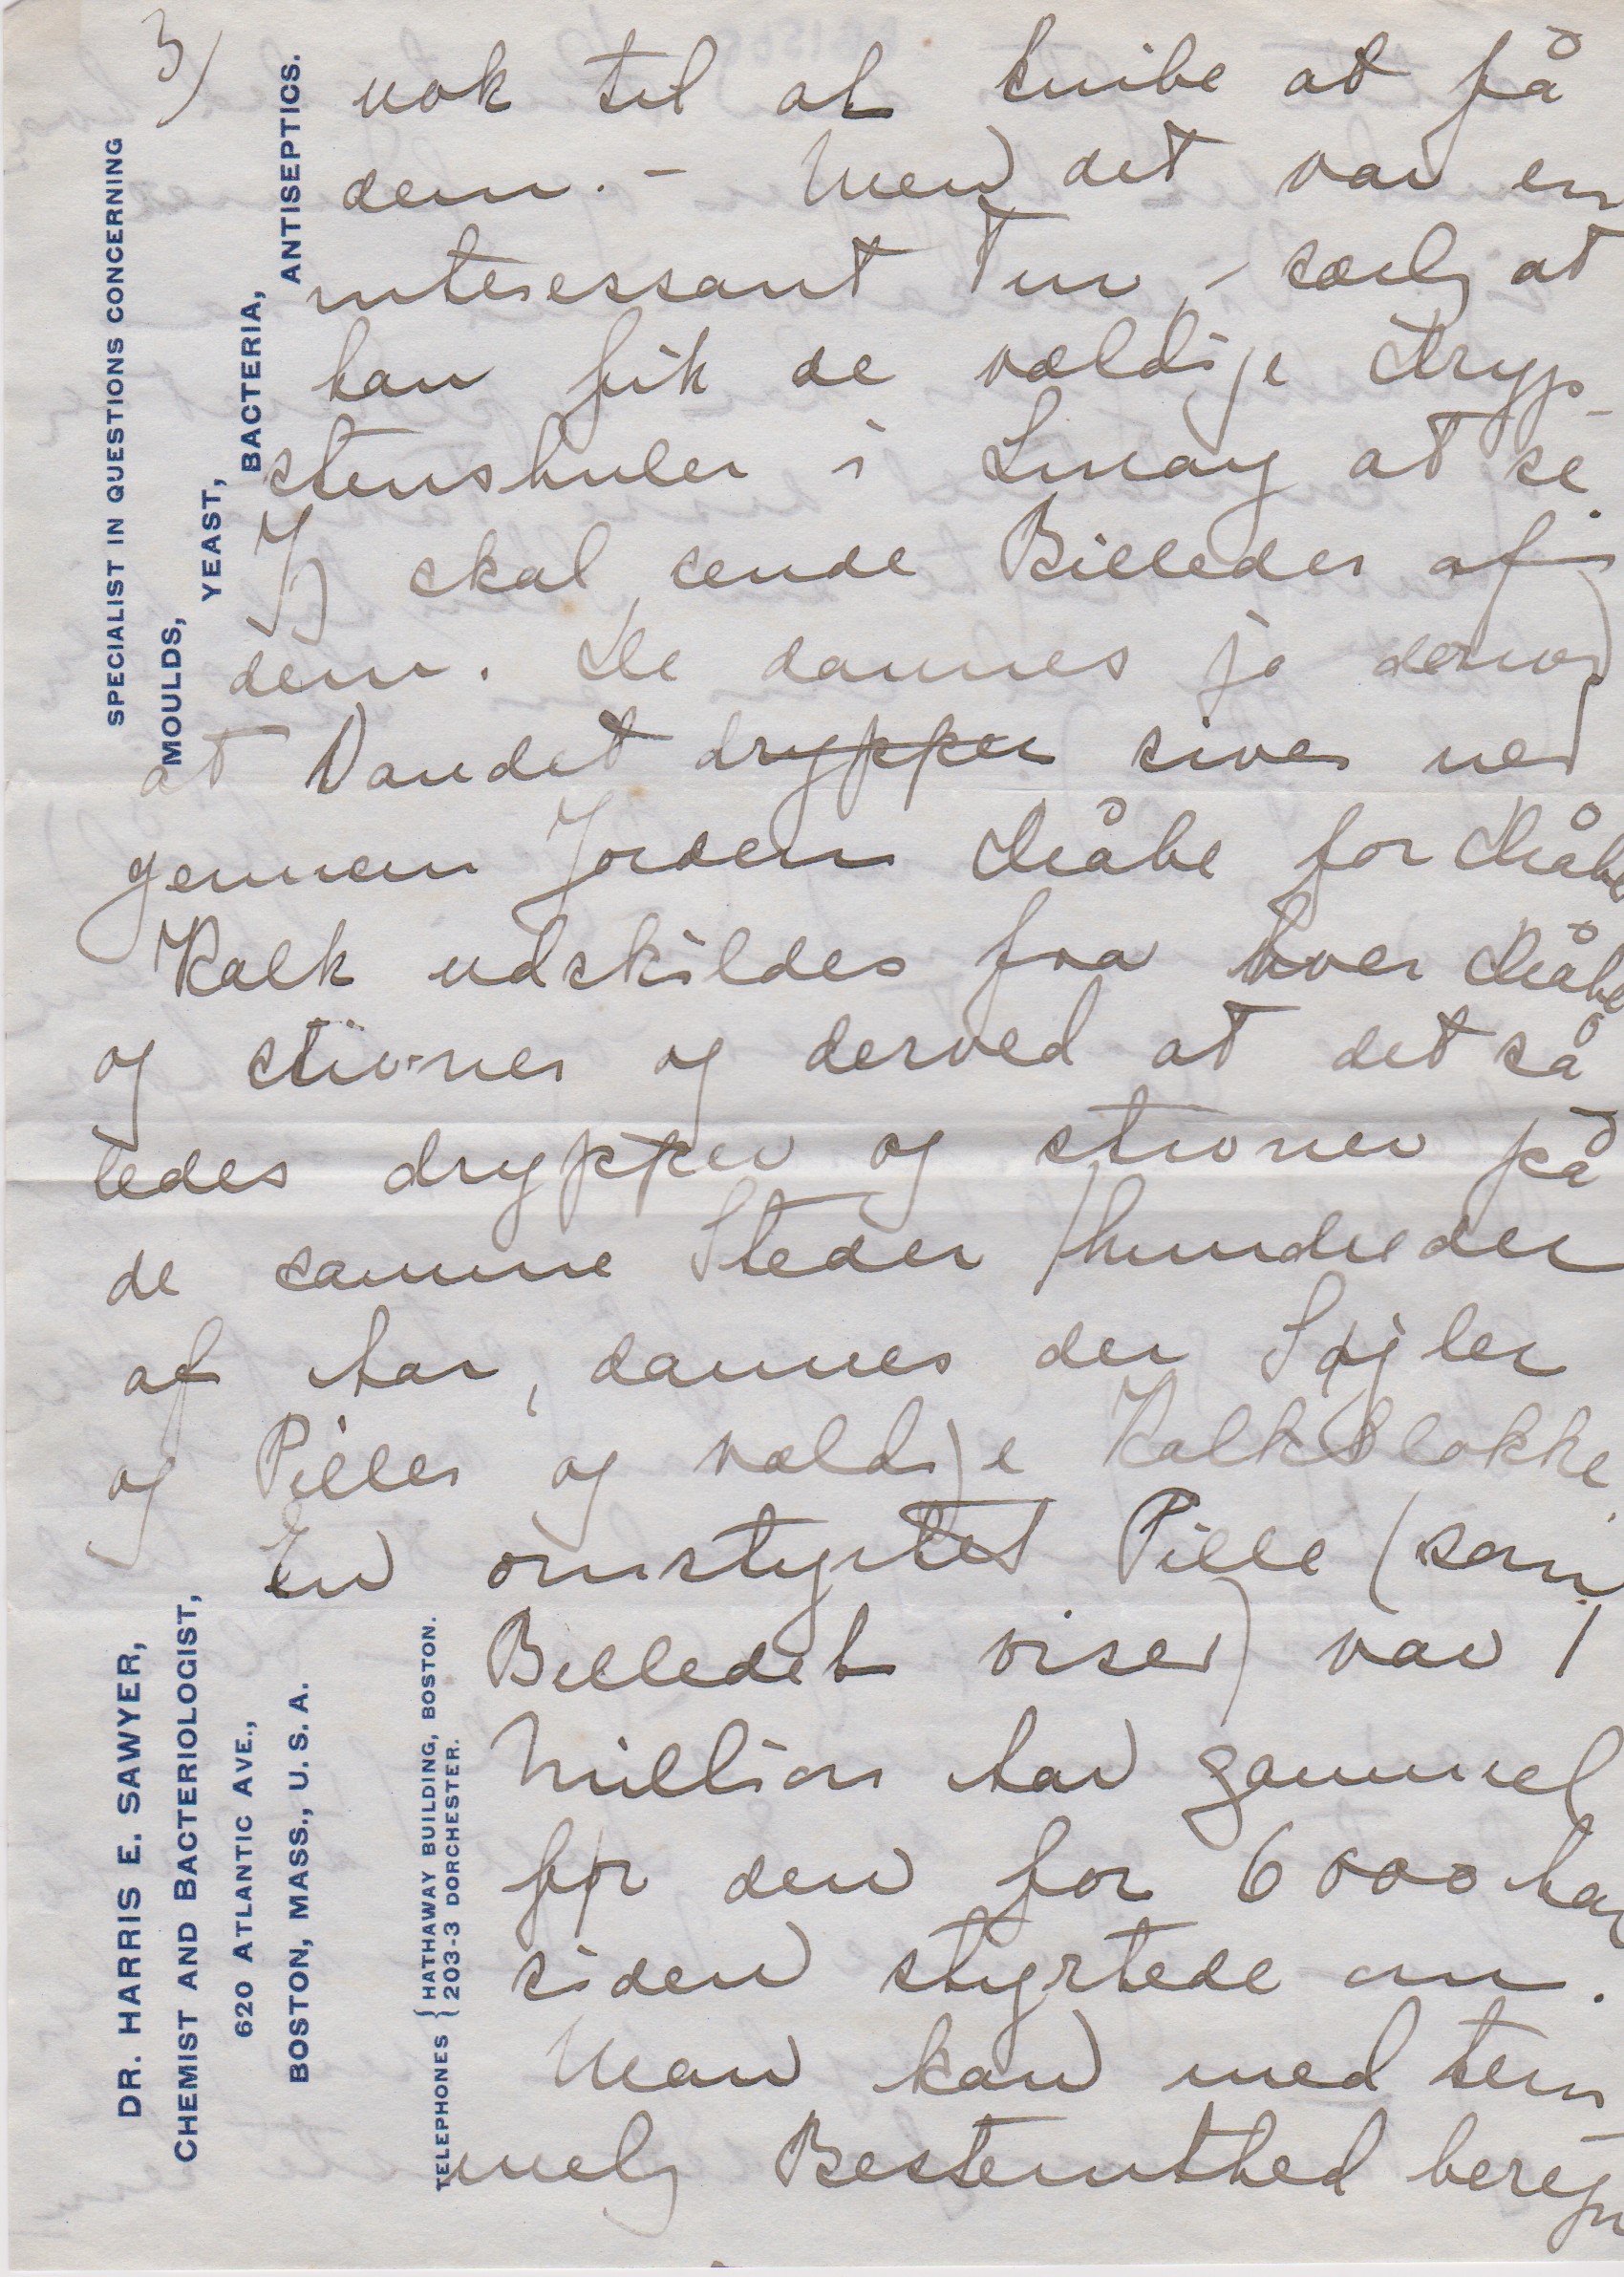 3)
SPECIALIST IN QUESTIONS CONCERNING
MOULDS,
YEAST,
BACTERIA,
ANTISEPTICS.
nok til at knibe at få
dem. - Men det var en
interessant Tur, - særlg at
han fik de vældige Dryp-
stenshuler i Luray at se.
Jg skal sende Billeder af
dem. De dannes jo derved
at Vandet drypper siver ned
gennem Jorden Dråbe for Dråbe
Kalk udskildes fra hver Dråbe
og stivner og derved at det så
ledes drypper og stivner på
de samme Steder hundreder
af Aar, dannes der Søjler
og Piller og vældige Kalkblokke.
En omstyrtet Pille (som
Billedet viser) var 1
Million Aar gammel
før den for 6000 Aar
siden styrtede om.
Man kan med tem
melg Bestemthed beregn
DR. HARRIS E. SAWYER,
CHEMIST AND BACTERIOLOGIST,
620 ATLANTIC AVE.,
BOSTON, MASS., U. S. A.
TELEPHONES { HATHAWAY BUILDING, BOSTON.
{ 203-3 DORCHESTER.